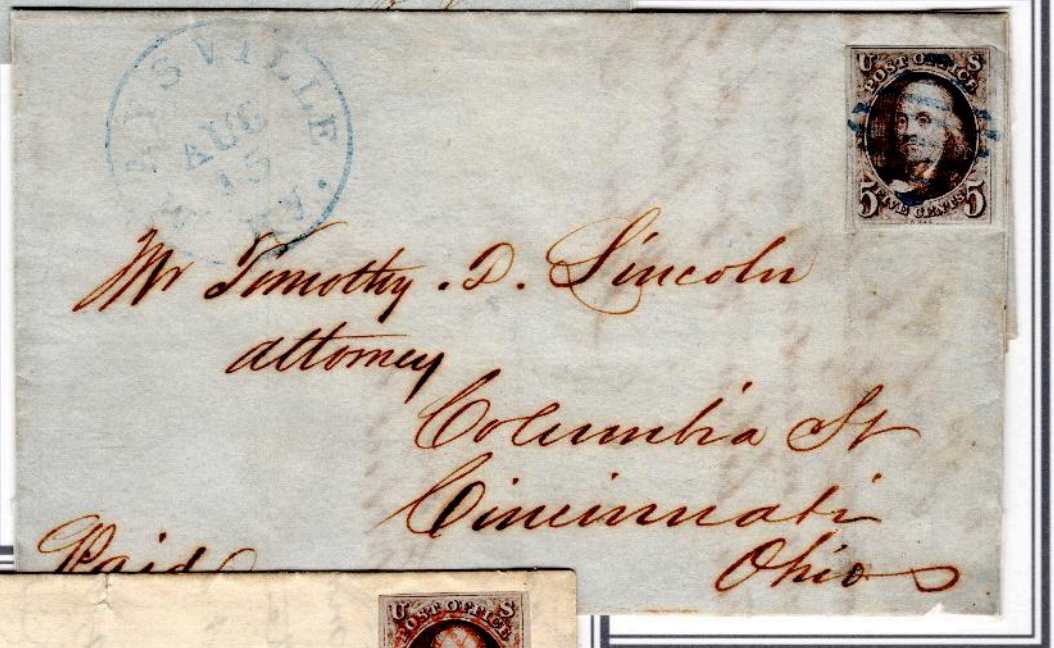 MAYSVILLE. Ky.
AUG
15
U S
POST OFFICE
5 FIVE CENTS 5
Mr Timothy. D. Lincoln
attorney
Columbia St
Cincinnati
Ohio
Paid
U S
POST OFFICE